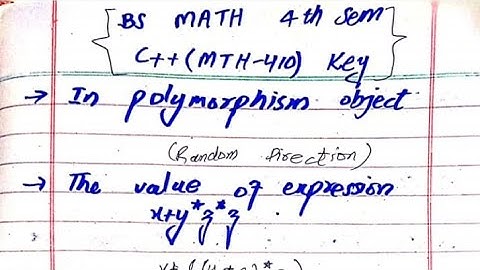 BS MATH 4th Sem
C++ (MTH-410) Key
→ In polymorphism object
(Random Direction)
→ The value of expression
x+y*z*z